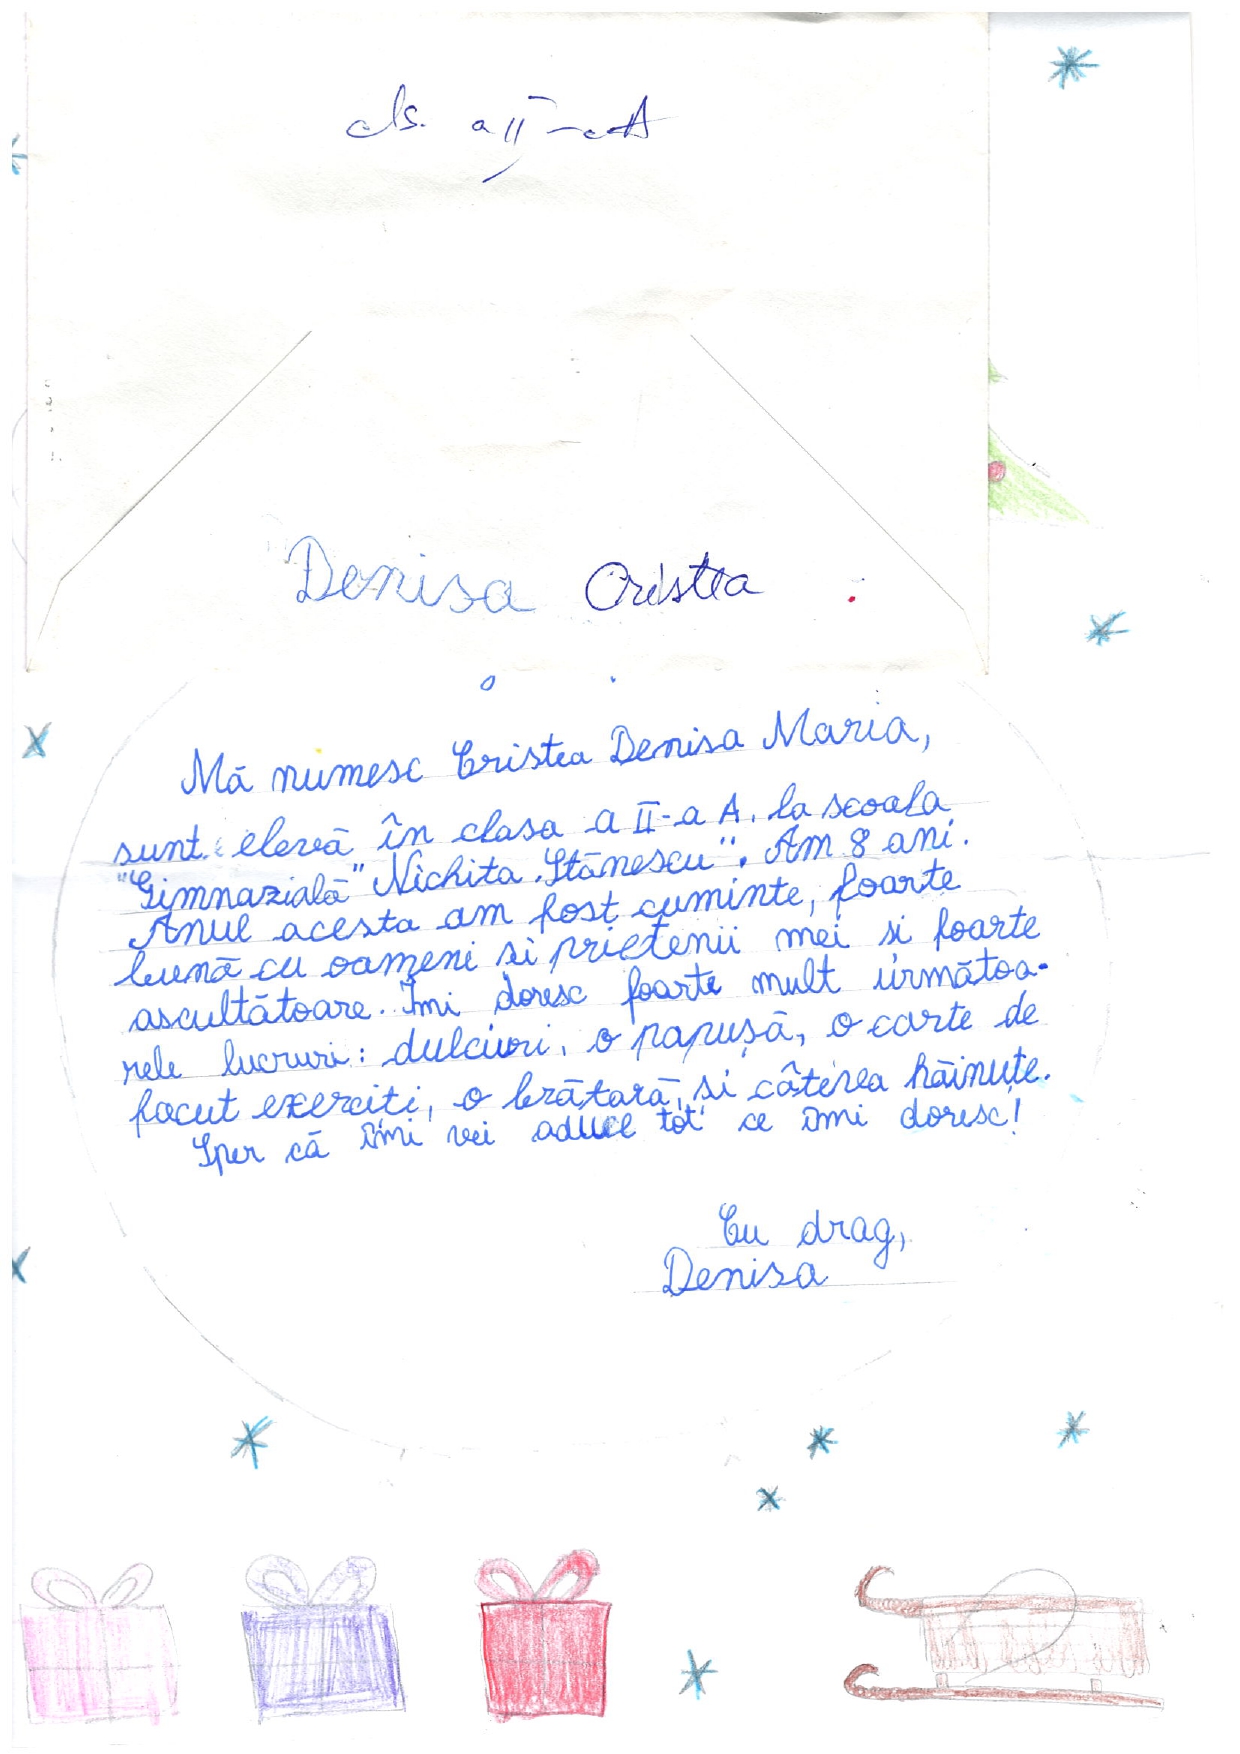 cls. a II-a A
Denisa Cristea
Mă numesc Cristea Denisa Maria,
sunt elevă în clasa a II-a A, la scoala
"Gimnazială" Nichita Stănescu". Am 8 ani.
Anul acesta am fost cuminte, foarte
bună cu oameni si prietenii mei si foarte
ascultătoare. Îmi doresc foarte mult următoa-
rele lucruri: dulciuri, o papușă, o carte de
facut exerciti, o brătară, si câteva hăinuțe.
Sper că îmi vei aduce tot ce îmi doresc!
Cu drag,
Denisa